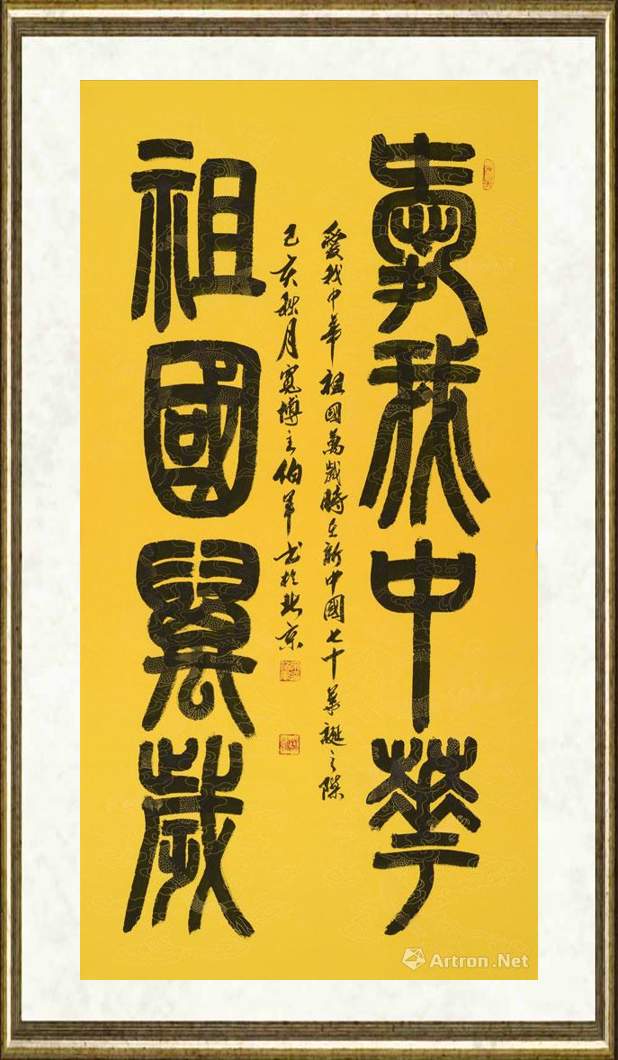 愛我中華
祖國萬歲
愛我中華祖國萬歲時在新中國七十華誕之際
己亥秋月寬博主伯軍书於北京
Artron.Net